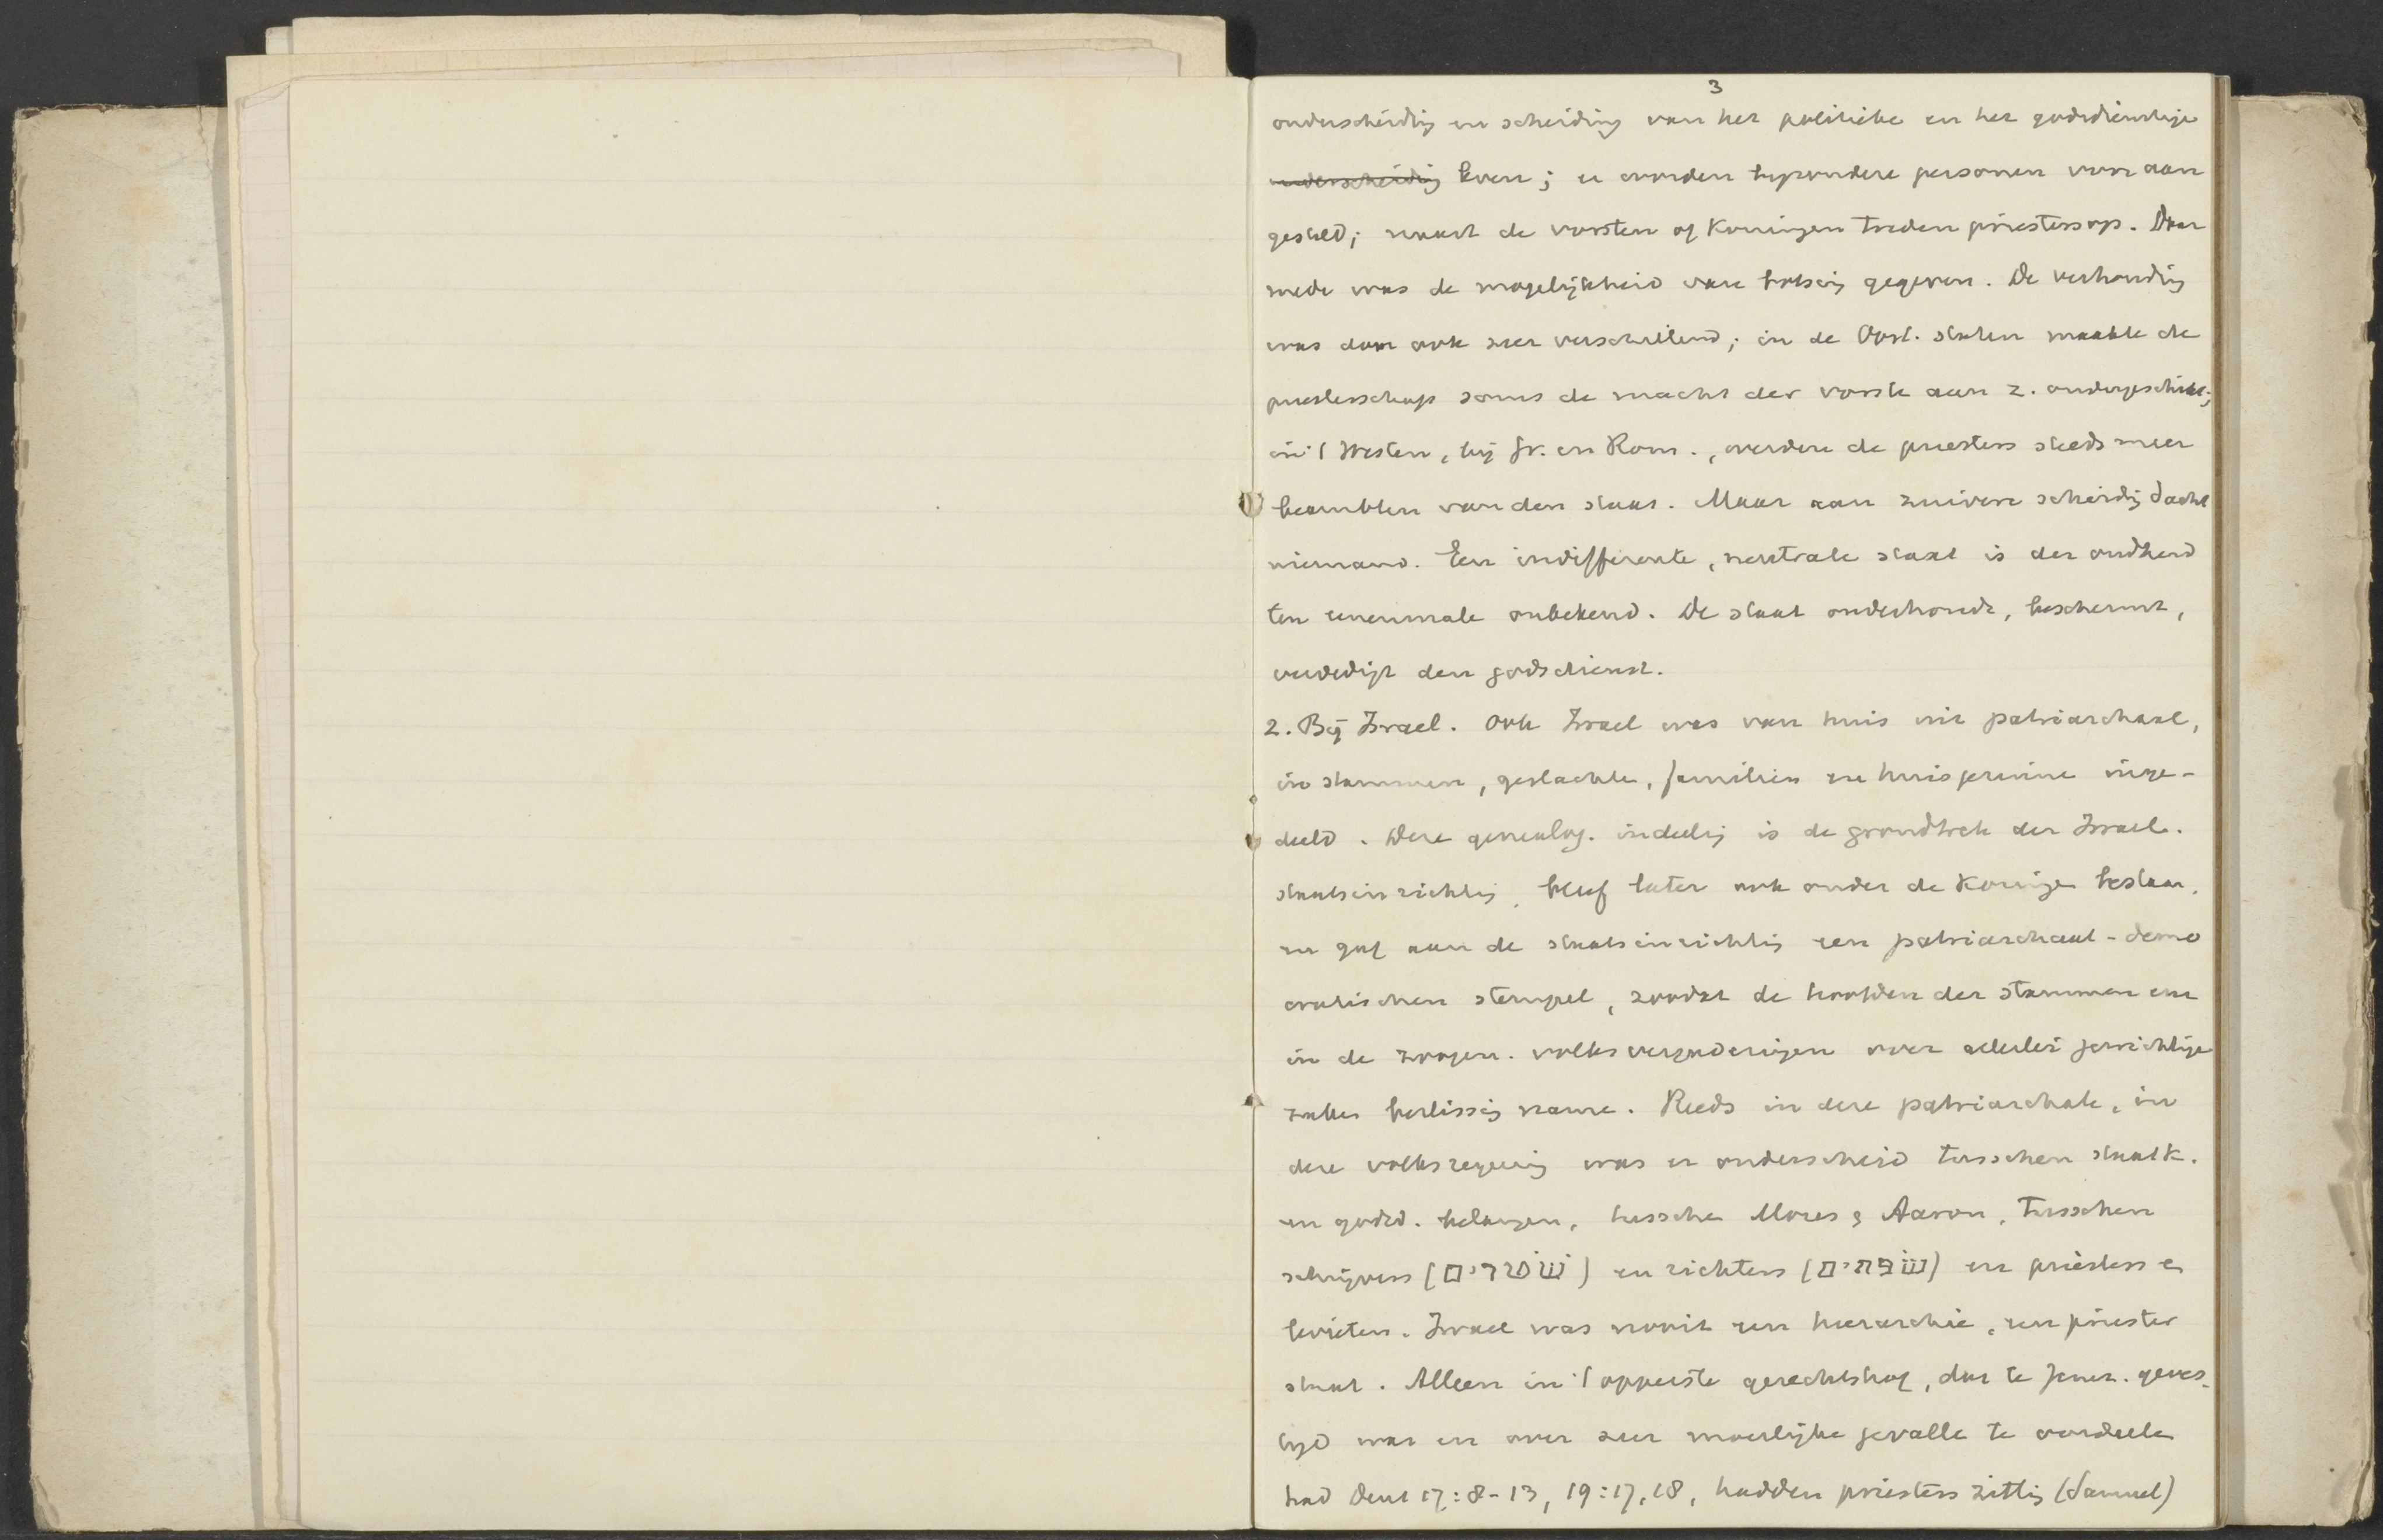 3
onderscheidig en scheiding van het politieke en het godsdienstige
~~onderscheidig~~ leven; er worden byzondere personen voor aan
gesteld; naast de vorsten of Koningen treden priesters op. Daar
mede was de mogelijkheid van botsing gegeven. De verhoudig
was dan ook zeer verschillend; in de Oost. staten maakte de
priesterschap soms de macht der vorste aan z. ondergeschikt;
in 't Westen, bij Gr. en Rom., werden de priesters steeds meer
beambten van den staat. Maar aan zuivere scheidig dacht
niemand. Een indifferente, neutrale staat is der oudheid
ten eenenmale onbekend. De staat onderhoudt, beschermt,
verdedigt den godsdienst.
2. Bij Israel. Ook Israel was van huis uit patriarchaal,
in stammen, geslachte, familien en huisgezinne inge-
deeld. Deze genealog. indeelig is de grondtrek der Israel.
staatsinrichtig, bleef later ook onder de Koninge bestaan,
en gaf aan de staatsinrichtig een patriarchaal-demo
cratischen stempel, zoodat de hoofden der stammen enz
in de zoogen. volksvergaderingen over allerlei gewichtige
zaken beslissig name. Reeds in deze patriarchale, in
deze volksregeerig was er onderscheid tusschen staatk.
en godsd. belangen, tussche Mozes & Aaron, tusschen
schrijvers (שׁטרים) en richters (שׁפתים) en priesters e
levieten. Israel was nooit een hierarchie, een priester
staat. Alleen in 't opperste gerechtshof, dat te Jeruz. geves-
tigd was en over zeer moeilijke gevalle te oordeele
had Deut 17:8-13, 19:17,18, hadden priesters zittig (Samuel)